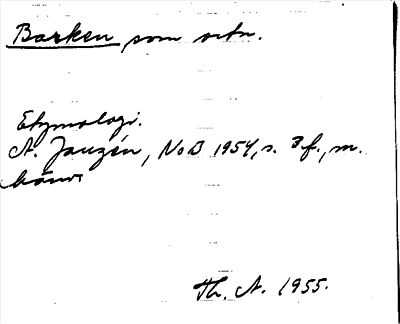 Barken som ortn.
Etymologi.
A. Janzén, NoB 1954, s. 3 f., m.
hänv.
Th. A. 1955.